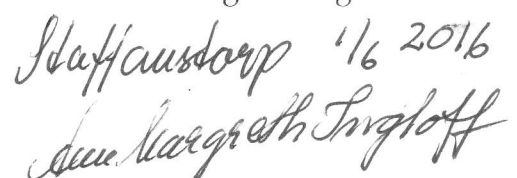 Staffanstorp 1/6 2016
Ann Margreth Ingloff